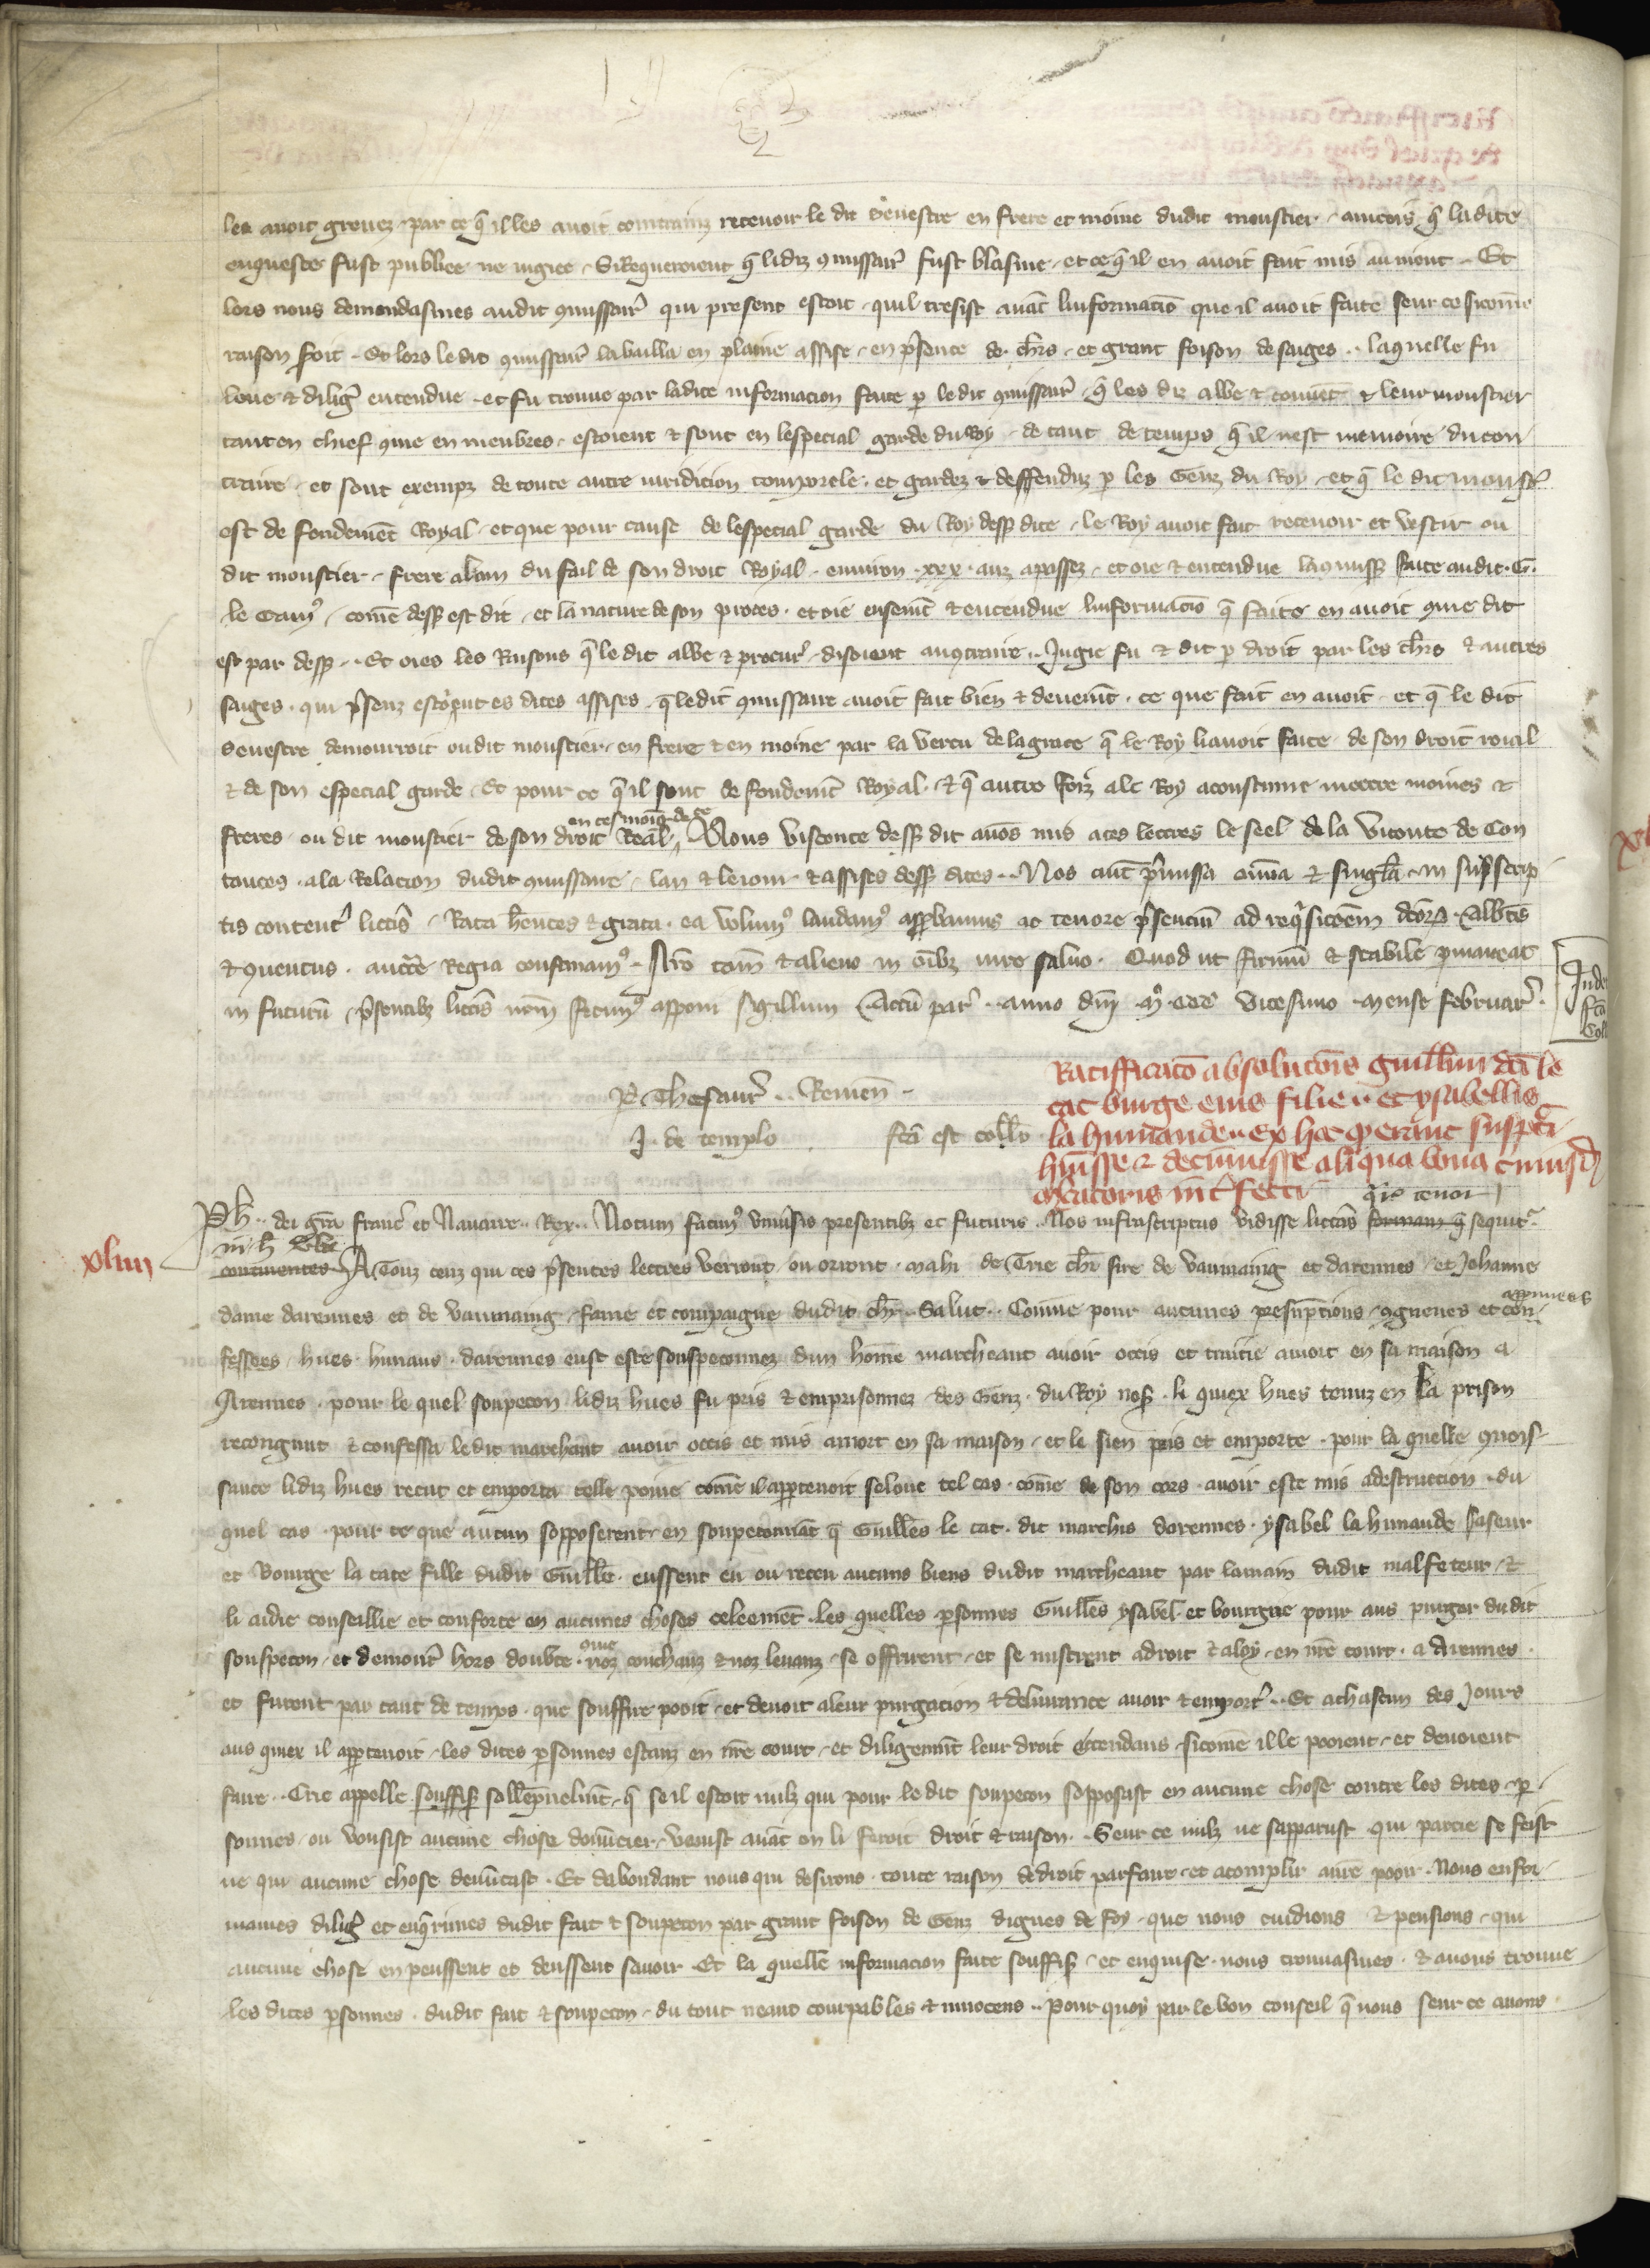 les avoit grevez par ce q̄ il les avoit contrainz recevoir le dit Sevestre en frere et moine dudit moustier . aincois q̄ ladite
enqueste fust publiee ne jugiee . Si Requeroient q̄ lidiz 9missair̉ fust blasme . et ce q̄ il en avoit fait mis au nient . Et
lors nous demandasmes audit 9missair̉ qui present estoit . quil tresist avāt linformaciō que il avoit faite seur ce sicome
raison soit . Et lors ledit 9missair̉ la bailla en plaine assise . en p̄sence de ch̄rs . et grant foison de saiges .. laquelle fu
leue & diligē entendue . et fu trouve par ladite informacion faite p le dit 9missair̉ . q̄ les diz abbe & couvēt & leur moustier
tant en chief 9me en menbres . estoient & sont en lespecial garde du Roy . de tant de temps q̄ il nest memoire du con
traire . et sont exempz de toute autre juridicion temporele . et gardez & deffenduz p les Genz du Roy . et q̄ le dit moust̉
est de fondemēt Royal . et que pour cause de lespecial garde du Roy dess9 dite . le Roy avoit fait recevoir et vestir ou
dit moustier . frere alain du fail de son droit Royal . environ . xxx . anz apassez . et oie & entendue la 9miss9 faite audit . G.
le Cam9 . come dess9 est dit . et la nature de son proces . et oie ensemēt & entendue linformaciō q̄ faite en avoit 9me dit
est par dess9 .. Et oies les Raisons q̄ le dit abbe & procur̉ . disoient au9traire .. Jugie fu & dit p droit par les ch̄rs & autres
saiges . qui p̄senz estoient es dites assises . q̄ ledit 9missaire avoit fait bien & deuemēt . ce que fait en avoit . et q̄ le dit
Sevestre demourroit oudit moustier . en frere & en moine par la vertu de la grace q̄ le Roy li avoit faite . de son droit roial
& de son especial garde . Et pour ce q̄ il sont de fondemēt Royal . & q̄ autre foiz a le Roy acoustume mettre moines &
freres . ou dit moustier de son droit Real .. en tesmoīg de ce Nous visconte dess9 dit avōs mis a ces lettres le seel de la viconte de Con
tances . a la Relacion dudit 9missaire . lan & le jour & assises dess9 dites .. Nos aut̄ p̄missa om̄ia & sinḡla . in sup̄scrip
tis content̉ litt̄is . Rata h̄entes & grata . ea volum9 laudam9 app̄bamus ac tenore p̄senciū ad req̄sicōem dc̄or̄ . Abb̄tis
& 9ventus . auctē Regia confirmam9 .. Nr̄o tam̄ & alieno in oīb9 jure salvo . Quod ut firmū & stabile p̄maneat
in futurū . p̄sentib9 litt̄is nr̄m fecim9 apponi sigillum . Actū par̉ .. anno dn̄i . m̊ . ccc̊ vicesimo . mense februar̉ .
P Thesaur̉ .. Remen̄ .
J . de templo fc̄a est coll̄o
Ratifficatō absolutiōis guill̄mi dc̄i le
cat burge eius filie .. et ysabellis
la hunaude .. ex hoc q̄ erant suspc̄ti
h̄uisse & detinuisse aliqua bona cuiusd̄
m̄catoris int̉fecti q̄r̄ tenor
xliiii
Ph̄ .. dei gr̄a franc̉ et Navarre .. Rex .. Notum facim9 univ̄sis presentib9 et futuris .. Nos infrascriptas vidisse litt̄as formam q̄ sequit̉ .
in h̄ v̄ba
continentes A Touz ceuz qui ces p̄sentes lettres verront ou orront . Mahi de Trie ch̄r sire de Vaumaing et darennes . et Jehanne
dame darennes et de Vaumaing . fame et compaigne dudit ch̄r .. Salut .. Comme pour aucunes presūptions . 9gneues et con- approuvees
fessees . hues . hunaus . darennes eust este souspeconnez dun hōme marcheant avoir occis et traitie amort en sa maison a
Arennes . pour le quel soupecon lidiz hues fu pris & emprisonnez . des Genz . du Roy nos̉ . li quiex hues tenuz en la prison
recongnut & confessa ledit marchant avoir occis et mis amort en sa maison . et le sien pris et emporte . pour la quelle 9nois
sance lidiz hues recut et emporta telle poine cōme il app̄tenoit selonc tel cas . cōme de son cors . avoir este mis a destruction . du
quel cas . pour ce que aucun sopposerent . en soupeconnāt q̄ Guill̄es le cat . dit marchis darennes . ysabel la hunaude sa seur
et Bourge la cate fille dudit Guill̄e . eussent eu ou receu aucuns biens dudit marcheant par lamain dudit malfeteur . &
li aidie conseillie et conforte en aucunes choses celeemēt . les quelles p̄sonnes Guill̄es ysabel et bourgue pour aus purger dudit
souspecon . et demour̉ hors doubte . 9me noz couchanz & noz levanz . se offrirent . et se mistrent adroit & aloy . en nr̄e court . a Arennes .
et furent par tant de temps . que souffire pooit . et devoit aleur purgacion & delivrance avoir & emport̉ .. Et achascun des Jours
aus quiex il app̄tenoit . les dites p̄sonnes estanz en nr̄e court . et diligēmt leur droit attendans . sicōme il le pooient . et devoient
faire .. Crie appelle souffis̄ sollēpnelmt . q̄ se il estoit nulz qui pour le dit soupecon sopposast en aucune chose contre les dites p̄
sonnes . ou vousist aucune chose denūcier . venist avāt on li feroit droit & raison .. Seur ce nulz ne sapparust . qui partie se feist
ne qui aucune chose denūcast . Et dabondant nous qui desirons . toute raison & droit parfaire . et acomplir a nr̄e pooir . Nous enfor
mames diligē et enq̄rimes dudit fait & soupecon par grant foison de Genz dignes de foy . que nous cuidions & pensions . qui
aucune chose en peussent et deussent savoir . Et la quelle informacion faite souffis̄ . et enquise . nous trouvasmes . & avons trouve
les dites p̄sonnes . dudit fait & soupecon . du tout neant courpables & innocens .. Pour quoy par le bon conseil q̄ nous seur ce avons .